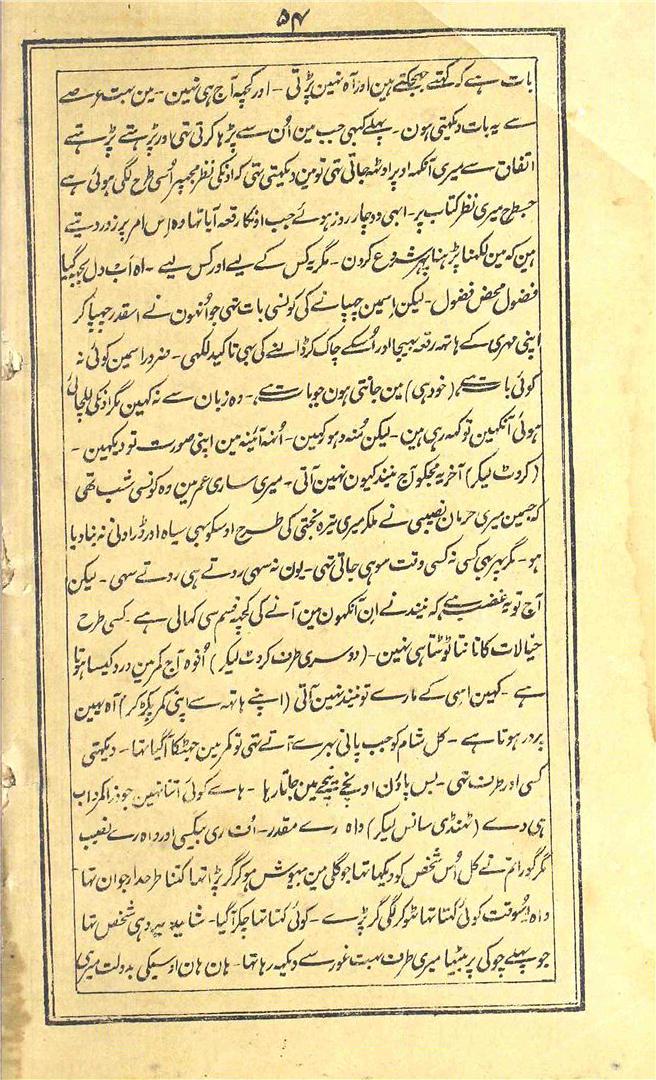 ۵۴
بات ہے کہ کہتے جہجکتے ہین اور آہ نہین پڑتی - اور کچہہ آج ہی نہین - مین بہت عرصے
سے یہ بات دیکہتی ہون - پہلے کبہی جب مین اُن سے پڑہا کرتی تہی اور پڑہتے پڑہتے
اتفاق سے میری آنکہہ اوپر اوٹہہ جاتی تہی تو مین دیکہتی تہی کہ اونکی نظر مجہپر اُسی طرح لگی ہوئی ہے
جسطرح میری نظر کتاب پر - ابہی دو چار روز ہوئے جب اونکا رقعہ آیا تہا وہ اِس امر پر زور دیتے
ہین کہ مین لکہنا پڑہنا پہر شروع کردن - مگر یہ کس کے لیے اور کس لیے - اہ اب دل بجہہ گیا
فضول محض فضول - لیکن اِسمین چہپانے کی کونسی بات تہی جو اُنہون نے اسقدر چہپا کر
اپنی مہری کے ہاتہہ رقعہ بہیجا اور اُسکے چاک کر ڈالنے کی بہی تاکید لکہی - ضرور اسمین کوئی نہ
کوئی بات ہے، (خود ہی) مین جانتی ہون جو بات ہے، - وہ زبان سے نہ کہین مگر اونکی للچائی
ہوئی آنکہین تو کہہ رہی ہین - لیکن مُنہ دہو رکہین - اُنہہ آئینہ مین اپنی صورت تو دیکہین -
(کروٹ لیکر) آخر یہ مجکو آج نیند کیون نہین آتی - میری ساری عمر مین وہ کونسی شب تہی
کہ جسمین میری حرمان نصیبی نے ملکر میری تیرہ بختی کی طرح اوسکو بہی سیاہ اور ڈراونی نہ بنا دیا
ہو - مگر پہر بہی کسی نہ کسی وقت سو ہی جاتی تہی - یون نہ سہی روتے ہی روتے سہی - لیکن
آج تو یہ غضب ہے کہ نیند نے اِن آنکہون مین آنے کی کچہہ قسم سی کہا لی ہے - کسی طرح
خیالات کا تانتا ٹوٹتا ہی نہین - (دوسری طرف کروٹ لیکر) اُفوہ آج کمر مین درد کیسا ہوتا
ہے - کہین اِسی کے مارے تو نیند نہین آتی (اپنے ہاتہہ سے اپنی کمر پکڑ کر) آہ یہین
پر درد ہوتا ہے - کل شام کو جب پانی بہرے آتے تہی تو کمر مین جہٹکا آگیا تہا - دیکہتی
کسی اور طرف تہی - بس پاؤن اونچے نیچے مین جاتا رہا - ہاے کوئی اتنا نہین جو ذرا کمر داب
ہی دے (ٹہنڈی سانس لیکر) واہ رے مقدر - اُف ری بیکسی اور واہ رے نصیب
مگر گورا تم نے کل اُس شخص کو دیکہا تہا جو گلی مین بیہوش ہو کر گر پڑا تہا کتنا طرحدار جوان تہا
واہ اُسوقت کوئی کہتا تہا ٹہوکر لگی گر پڑے - کوئی کہتا تہا چکر آگیا - شاید یہ وہی شخص تہا
جو پہلے چوکی پر بیٹہا میری طرف بہت غور سے دیکہہ رہا تہا - ہان ہان اوسیکی بدولت میری